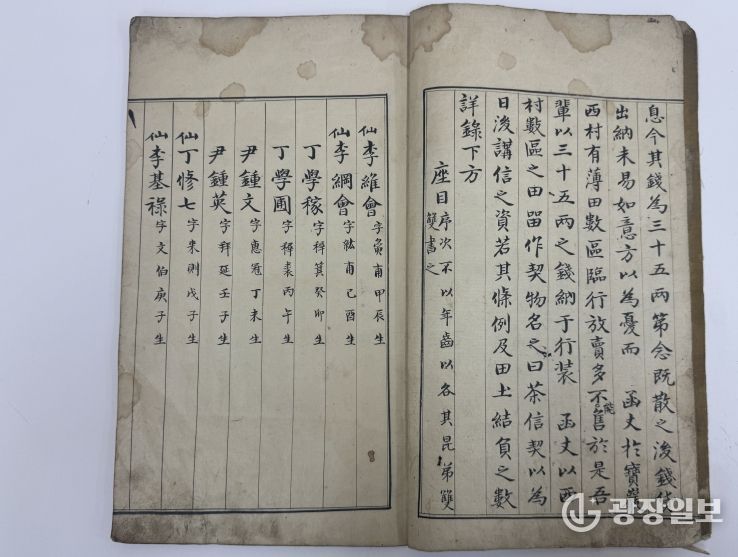 息今其錢為三十五兩第念既散之後錢
出納未易如意方以為憂而 函丈於寶
西村有薄田數區臨行放賣多不能售於是吾
輩以三十五兩之錢納于行裝 函丈以西
村數區之田留作契物名之曰茶信契以為
日後講信之資若其條例及田土結負之數
詳錄下方
座目 序次不以年齒以各其昆弟雙
雙書之
仙 李維會 字 甫甲辰生
仙 李綱會 字紘甫己酉生
丁學稼 字稺箕癸卯生
丁學圃 字稺裘丙午生
尹鍾文 字惠冠丁未生
尹鍾英 字拜延壬子生
仙 丁修七 字來則戊子生
仙 李基祿 字文伯庚子生
광장일보